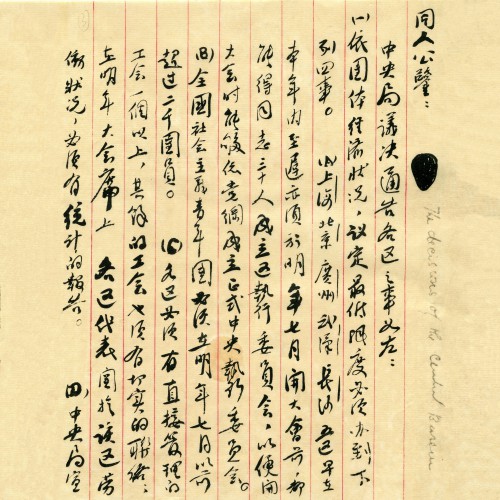 同人公鑒：
中央局議決通告各区之事如左：
(1)依團体經濟狀况，議定最低限度必須办到下
列四事。(A)上海北京廣州武漢長沙五区早在
本年内至遲亦須於明年七月開大會前，都
能得同志三十人成立区執行委員会，以便開
大会時能够依党綱成立正式中央執行委員会。
(B)全國社会主義青年團必須在明年七月以前
超过二千團員。(C)各区必須有直接管理的
工会一個以上，其餘的工会也須有切实的联络；
在明年大会席上各区代表関於該区劳
働狀况，必須有統計的報告。(D)中央局宣
The decisions of the Central Bureau